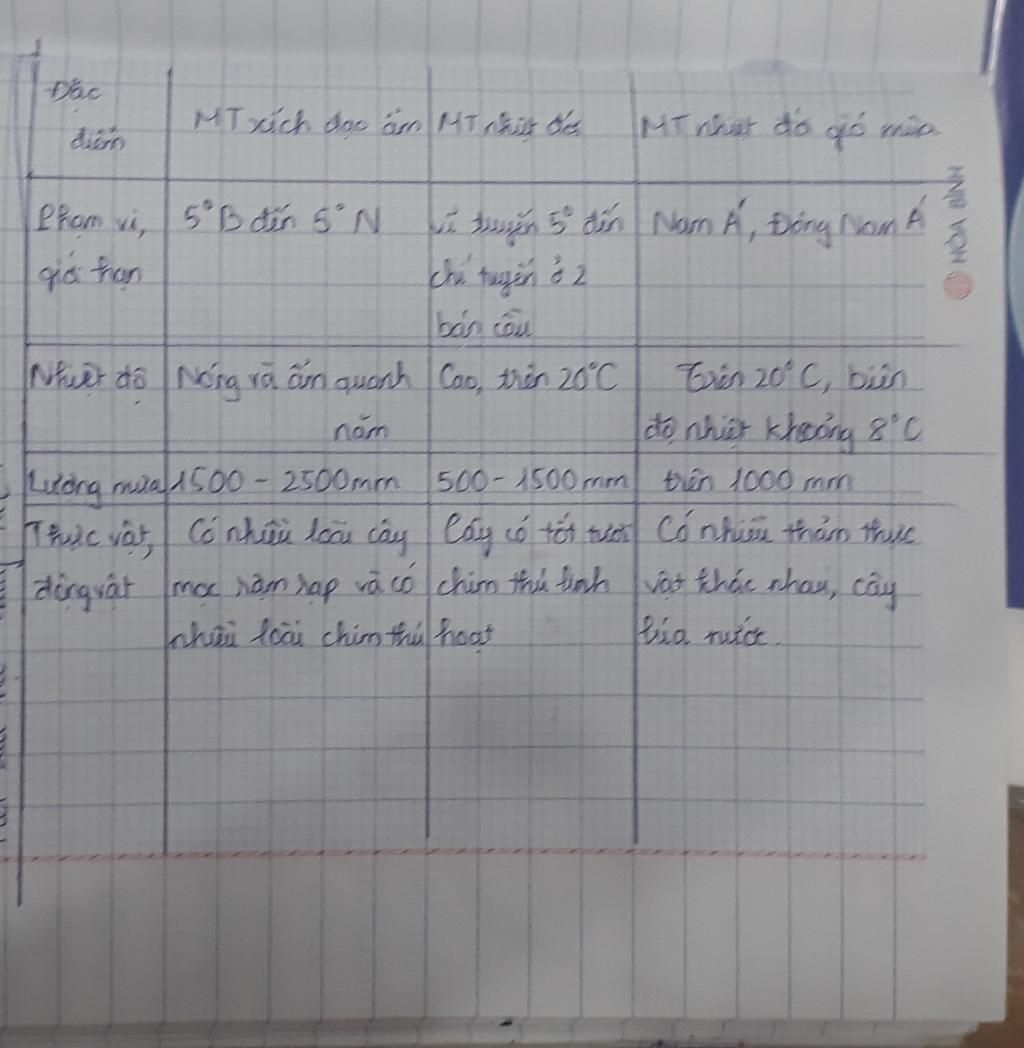 Đặc
điểm
MT xích đạo ẩm
MT nhiệt đới
MT nhiệt đới gió mùa
Phạm vi,
giới hạn
5°B đến 5°N
Vĩ tuyến 5° đến
chí tuyến ở 2
bán cầu
Nam Á, Đông Nam Á
Nhiệt độ
Nóng và ẩm quanh
năm
Cao, trên 20°C
Trên 20°C, biên
độ nhiệt khoảng 8°C
Lượng mưa
1500 - 2500mm
500 - 1500mm
trên 1000 mm
Thực vật,
động vật
Có nhiều loài cây
mọc rậm rạp và có
nhiều loài chim thú
Cây cỏ tốt tươi
chim thú linh
hoạt
Có nhiều thảm thực
vật khác nhau, cây
lúa nước.
HÒA BÌNH